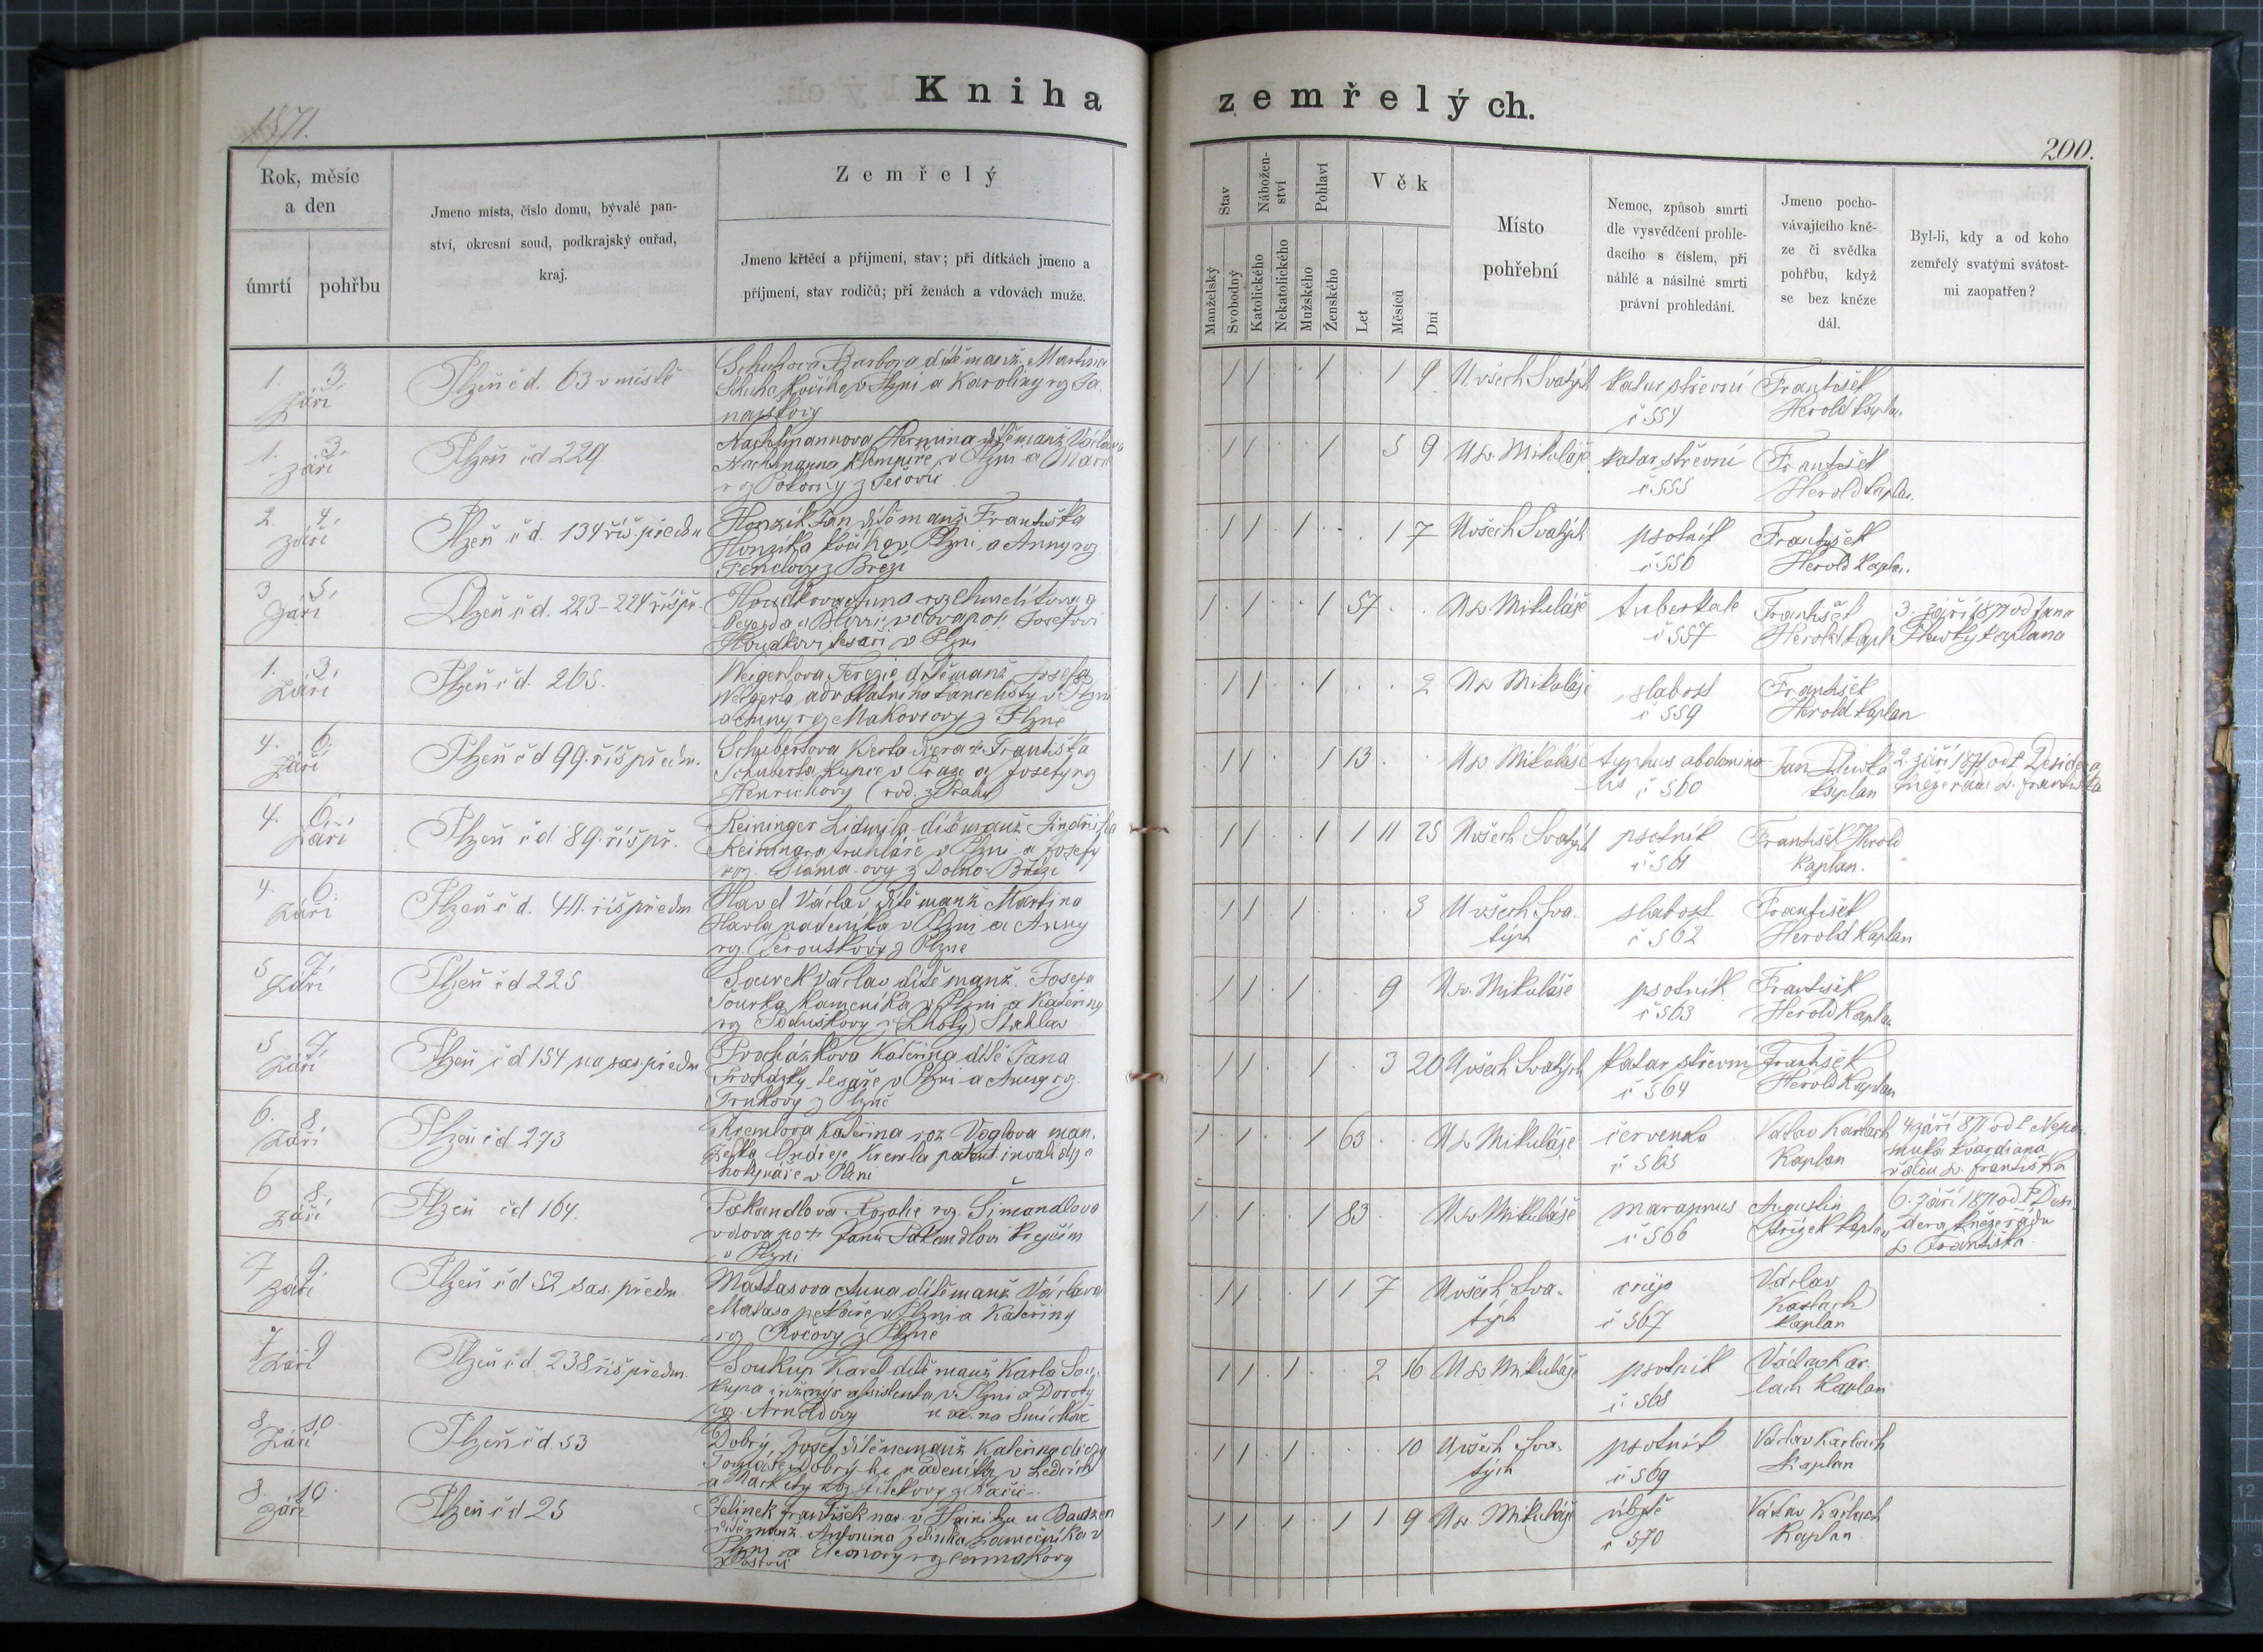 Kniha zemřelých.
1871.
200.
Rok, měsíc
a den
úmrtí
pohřbu
Jmeno místa, číslo domu, bývalé pan-
ství, okresní soud, podkrajský ouřad,
kraj.
Zemřelý
Jmeno křtěcí a příjmení, stav; při dítkách jmeno a
příjmení, stav rodičů; při ženách a vdovách muže.
Stav
Manželský
Svobodný
Nábožen-
ství
Katolického
Nekatolického
Pohlaví
Mužského
Ženského
Věk
Let
Měsíců
Dní
Místo
pohřební
Nemoc, způsob smrti
dle vysvědčení prohle-
dacího s číslem, při
náhlé a násilné smrti
právní prohledání.
Jmeno pocho-
vávajícího kně-
ze či svědka
pohřbu, když
se bez kněze
dál.
Byl-li, kdy a od koho
zemřelý svatými svátost-
mi zaopatřen?
1. 3.
září
Plzeň č d. 63 v městě
Barbora dítě manž. Martina
v Plzni a Karoliny roz.
1 9
U všech Svatých
katar střevní
č 554
František
Herold kaplan.
1. 3.
září
Plzeň č d 229
Nachtmannova Hermina dítě manž. Václava
Nachtmanna klempíře v Plzni a Marie
5 9
U sv. Mikuláše
katar střevní
č 555
František
Herold kaplan.
2. 4.
září
Plzeň č d. 134 říš. předm
Honzík Jan dítě manž. Františka
Honzíka v Plzni a Anny roz.
1 7
U všech Svatých
psotník
č 556
František
Herold kaplan.
3 5.
září
Plzeň č d. 223-224 říš př.
Houdkova Anna roz.
vdova po Josefovi
Houdkovi tesaři v Plzni
57
U sv. Mikuláše
tuberkule
č 557
František
Herold kapl
3. září 1871 od Jana
Plewky kaplana
1. 3.
Září
Plzeň č d. 265.
Weigertova Terezie dítě manž. Josefa
Weigerta advokatního kancelisty v Plzni
a Anny roz. Makovcovy z Plzně
2
U sv Mikuláše
slabost
č 559
František
Herold kaplan
4. 6.
září
Plzeň č d 99. říš předm.
Schubertova Berta dcera Františka
Schuberta kupce v Praze a Josefy roz
Henrichovy (rod. z Prahy)
13
U sv Mikuláše
typhus abdomina-
lis č 560
Jan Plewka
kaplan
2. září 1871 od P. Desidera
kněze řádu sv. Františka
4. 6.
září
Plzeň č d 89. říš př.
Reininger Lidmila dítě manž. Jindřicha
Reiningra truhláře v Plzni a Josefy
roz. z Dolno-Bříze
1 11 25
U všech Svatých
psotník
č 561
František Herold
kaplan.
4. 6.
září
Plzeň č d. 411. říš předm
Havel Václav dítě manž. Martina
Havla nadeníka v Plzni a Anny
roz. z Plzně
3
U všech Sva-
tých
slabost
č 562
František
Herold kaplan
5 7.
září
Plzeň č d 225
Sourek Václav dítě manž. Josefa
Sourka kameníka v Plzni a Kateřiny
9
U sv. Mikuláše
psotník
č 563
František
Herold kaplan
5 7
září
Plzeň č d 154 na sas. předm
Procházkova Kateřina dítě Jana
Procházky tesaře v Plzni a Anny roz.
z Plzně
3 20
U všech Svatých
katar střevní
č 564
František
Herold kaplan
6. 8
září
Plzeň č d 273
Kremlova Kateřina roz Voglova man-
želka Ondřeje Kremla patent. invalidy a
hokynáře v Plzni
63
U sv Mikuláše
červenka
č 565
Václav Karlach
kaplan
4 září 871 od P. Nepo-
muka kvardiana
řádu sv. Františka
6 8.
září
Plzeň č d 164.
Pakandlova Rozalie roz. Šimandlova
vdova po † Janu Pakandlovi krejčím
v Plzni
83
U sv Mikuláše
marasmus
č 566
Augustin
kaplan
6. září 1871 od P. Desi-
dera kněze řádu
sv Františka
7 9.
září
Plzeň č d 52 sas. předm.
Matasova Anna dítě manž Václava
Matasa pekaře v Plzni a Kateřiny
roz. z Plzně
1 7
U všech Sva-
tých
croup
č 567
Václav
Karlach
kaplan
7 9
září
Plzeň č d. 238 říš předm.
Soukup Karel dítě manž Karla Sou-
kupa inženýr assistenta v Plzni a Doroty
roz. Arnoldovy na Smíchově
2 16
U sv Mikuláše
psotník
č 568
Václav Kar-
lach kaplan
8. 10.
září
Plzeň č d. 53
Dobrý Josef dítě nemanž Kateřiny dcery
Tomáše Dobrý-ho nadeníka v
a Markety roz.
10
U všech Sva-
tých
psotník
č 569
Václav Karlach
kaplan
8. 10.
září
Plzeň č d 25
Jelinek František nar. v u
dítě manž. Antonina Jelinka zamečníka v
Plzni a Eleonory roz Čermakovy
1 9
U sv. Mikuláše
úbytě
č 570
Václav Karlach
kaplan